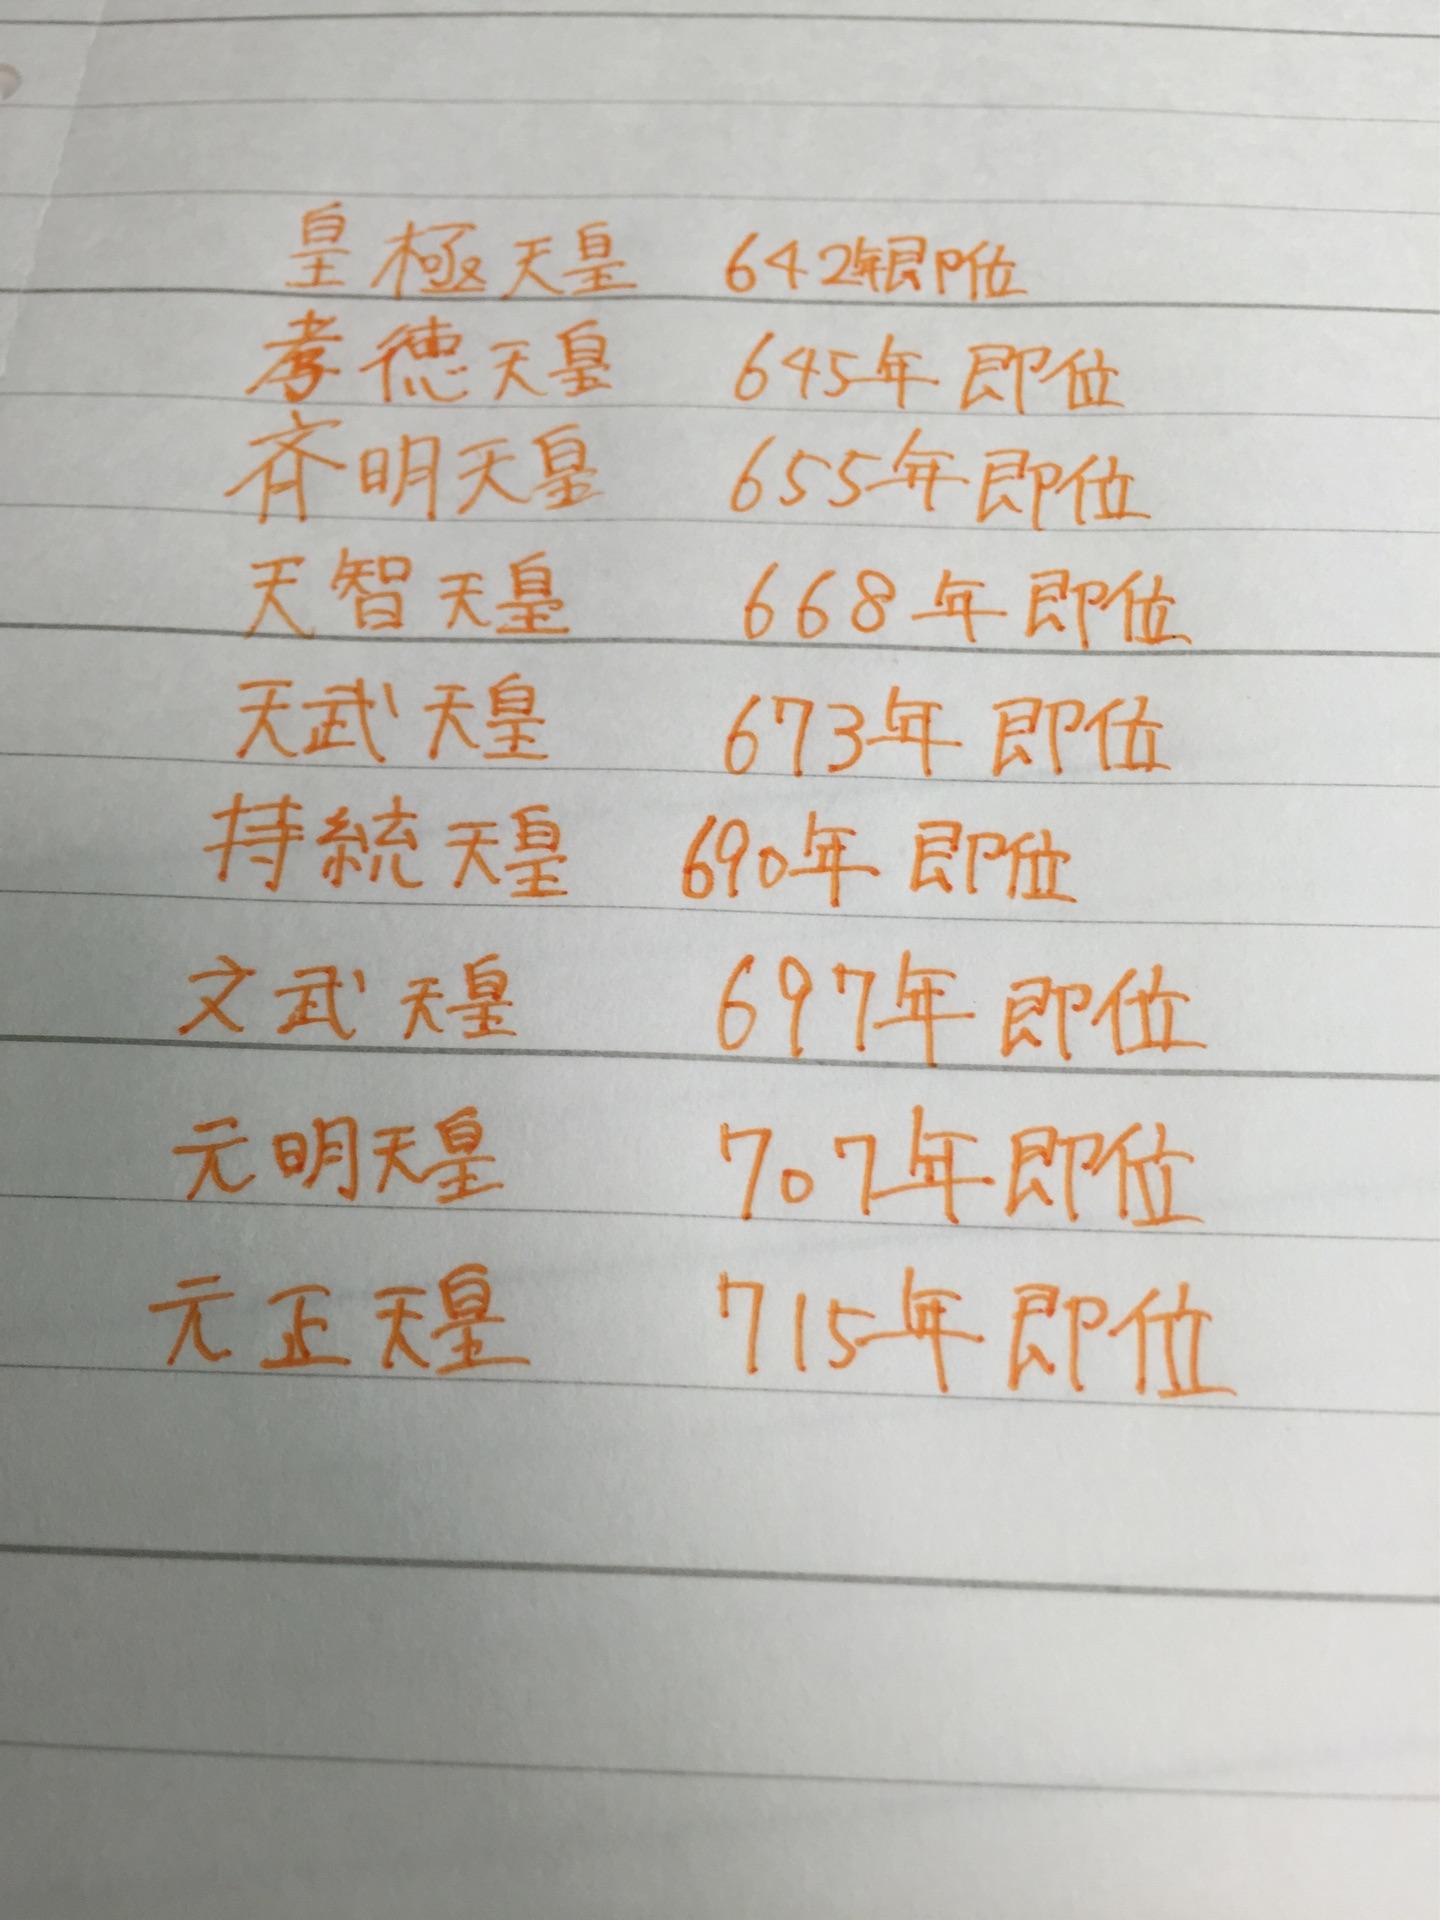 皇極天皇 642年即位
孝徳天皇 645年即位
斉明天皇 655年即位
天智天皇 668年即位
天武天皇 673年即位
持統天皇 690年即位
文武天皇 697年即位
元明天皇 707年即位
元正天皇 715年即位